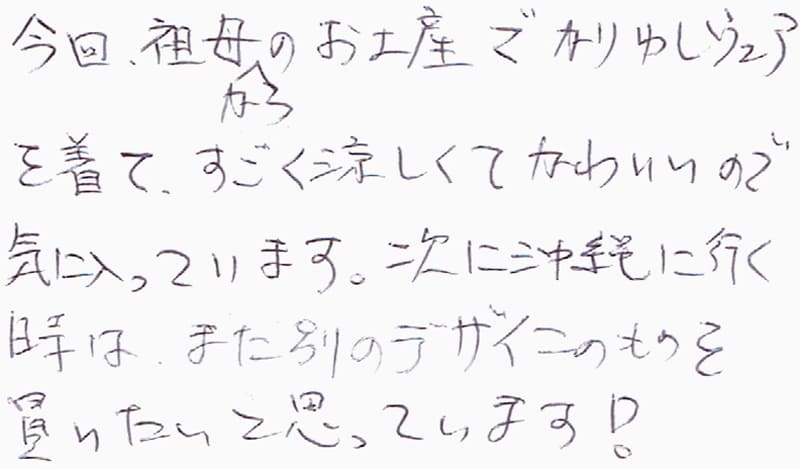 今回、祖母からのお土産でかりゆしウェア
を着て、すごく涼しくてかわいいので
気に入っています。次に沖縄に行く
時は、また別のデザインのものを
買いたいと思っています!